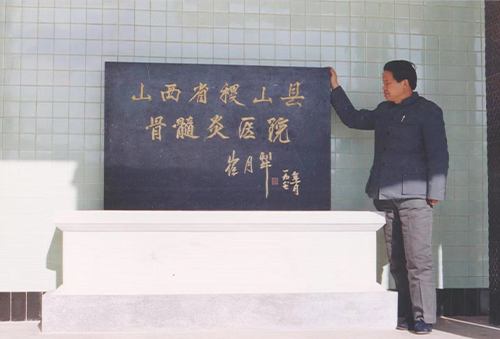 山西省稷山县
骨髓炎医院
崔月犁
一九八七年一月